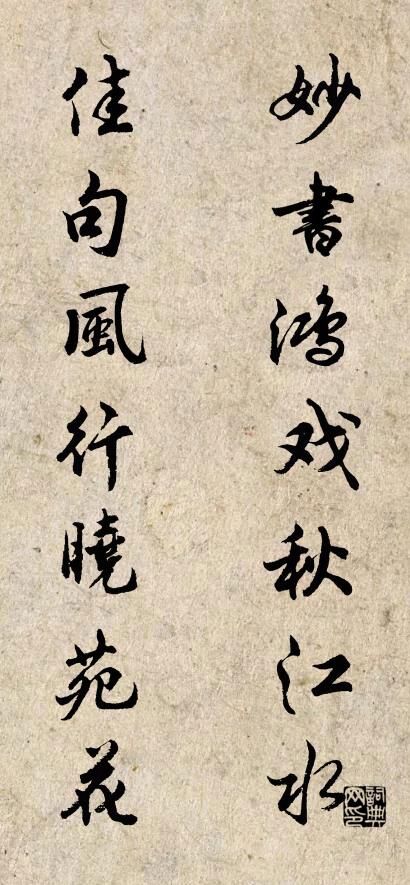 妙書鸿戏秋江水
佳句風行曉苑花
詞典网印